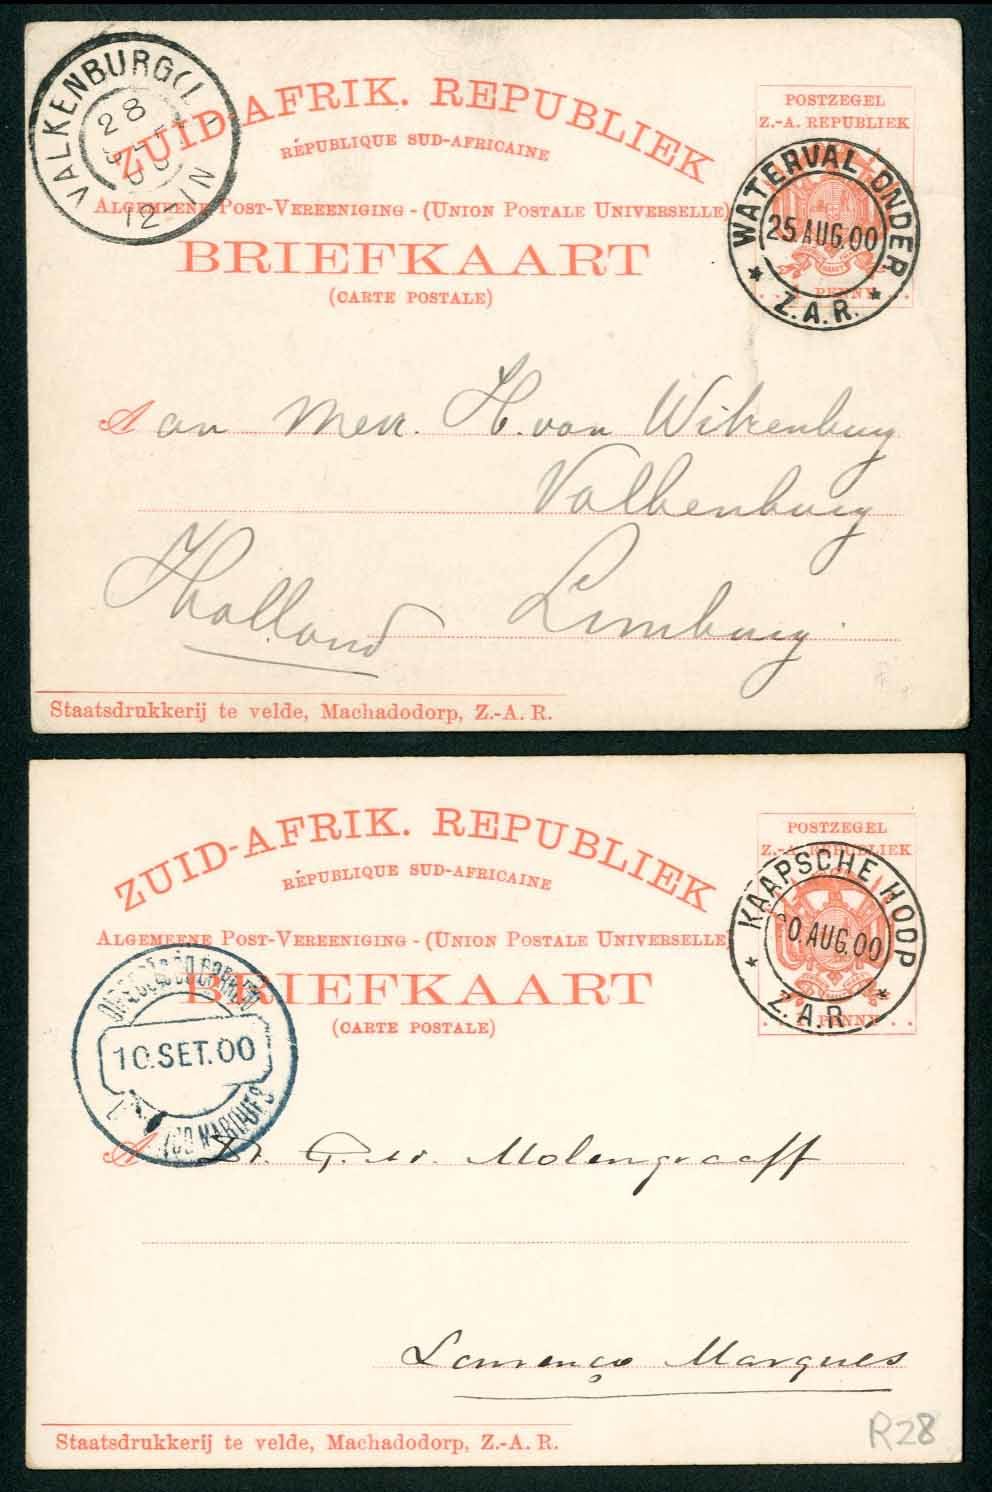 VALKENBURG (L
28
12-1N
ZUID-AFRIK. REPUBLIEK
RÉPUBLIQUE SUD-AFRICAINE
ALGEMEENE POST-VEREENIGING - (UNION POSTALE UNIVERSELLE)
BRIEFKAART
(CARTE POSTALE)
POSTZEGEL
Z.-A. REPUBLIEK
PENNY
WATERVAL ONDER
25.AUG.00
* Z.A.R. *
Aan Men. H. van Witzenburg
Valkenburg
Holland Limburg
Staatsdrukkerij te velde, Machadodorp, Z.-A. R.
ZUID-AFRIK. REPUBLIEK
RÉPUBLIQUE SUD-AFRICAINE
ALGEMEENE POST-VEREENIGING - (UNION POSTALE UNIVERSELLE
BRIEFKAART
(CARTE POSTALE)
POSTZEGEL
Z.-A. REPUBLIEK
PENNY
KAAPSCHE HOOP
0.AUG.00
* Z.A.R *
10.SET.00
MARQUES
A Dr. G. W. Molengraaff
Lourenço Marques
R28
Staatsdrukkerij te velde, Machadodorp, Z.-A. R.